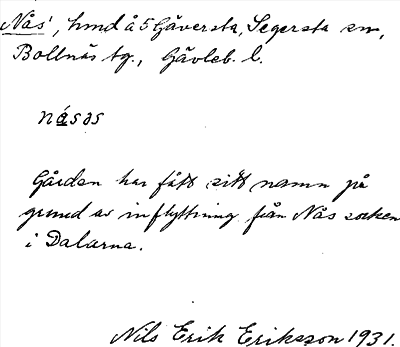 Nås, hmd å 5 Gåversta, Segersta sn,
Bollnäs tg., Gävleb. l.
nåsas
Gården har fått sitt namn på
grund av inflyttning från Nås socken
i Dalarna.
Nils Erik Eriksson 1931.